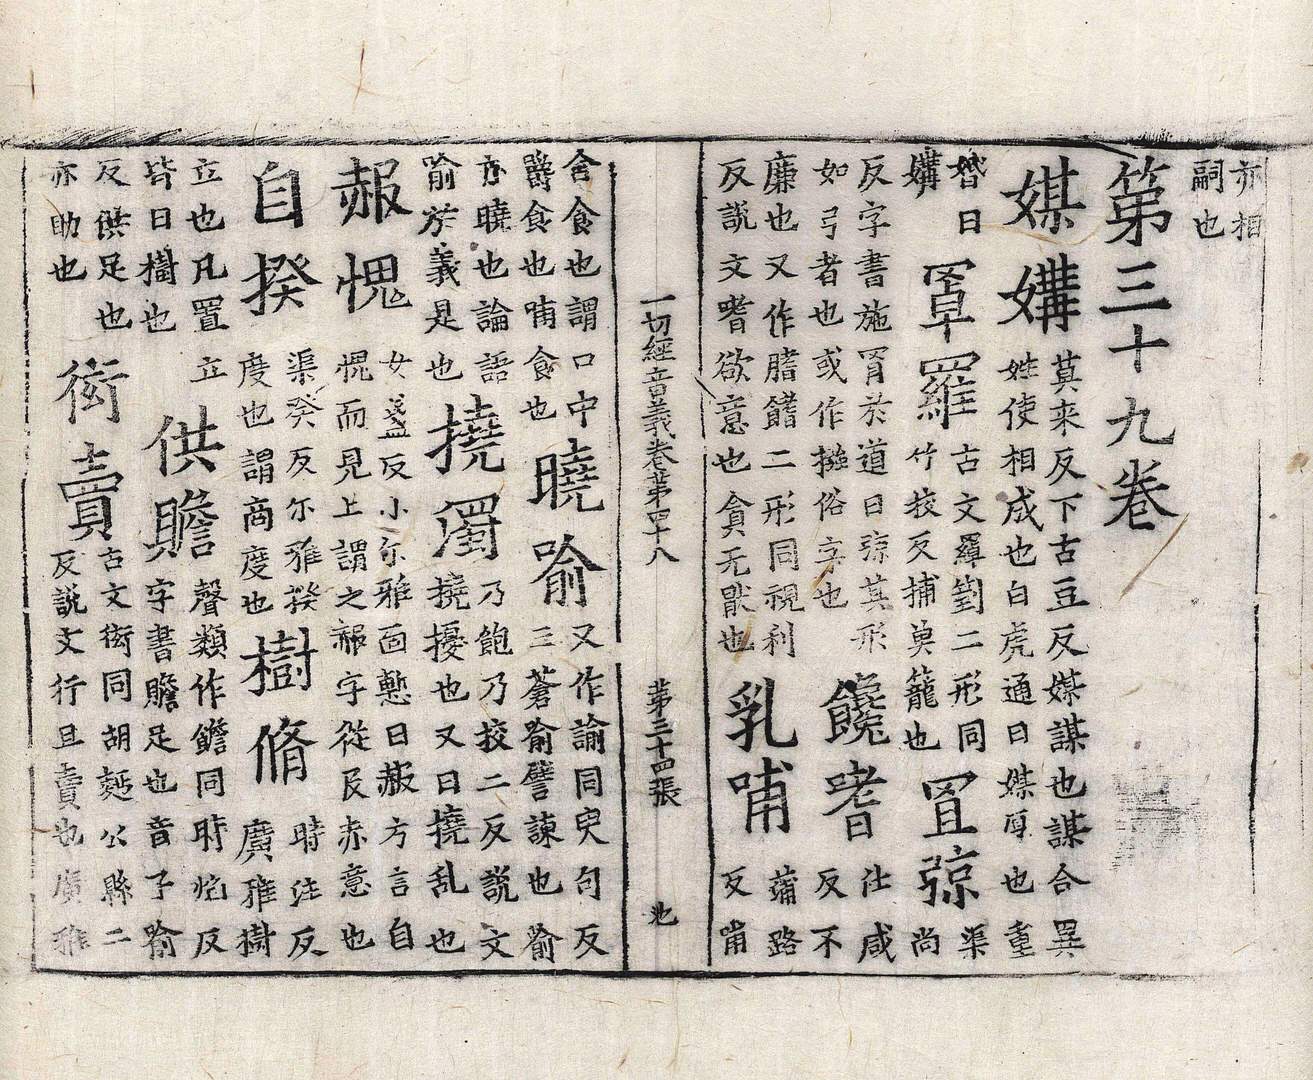 亦相
嗣也
第三十九卷
媒媾
莫來反下古豆反媒謀也謀合異
姓使相成也白虎通曰媒厚也重
婚曰
媾
罩羅
古文羄箌二形同
竹挍反捕魚籠也
罝弶
渠
尚
反字書施罥於道曰弶其形
如弓者也或作摾俗字也
饞嗜
仕咸
反不
廉也又作𦞯𩝙二形同視利
反說文嗜欲意也貪无猒也
乳哺
蒲路
反哺
一切經音義卷第四十八 第三十四張 池
含食也謂口中
嚼食也哺食也
曉喻
又作諭同臾句反
三蒼喻譬諫也喻
亦曉也論語
喻於義是也
撓濁
乃飽乃挍二反說文
撓擾也又曰撓乱也
赧愧
女盞反小尒雅面慙曰赧方言自
愧而見上謂之赧字從𠬝赤意也
自揆
渠癸反尒雅揆
度也謂商度也
樹脩
時注反
廣雅樹
立也凡置立
皆曰樹也
供贍
聲類作儋同時焰反
字書贍足也音子喻
反供足也
亦助也
衒賣
古文衒同胡麵公縣二
反說文行且賣也廣雅